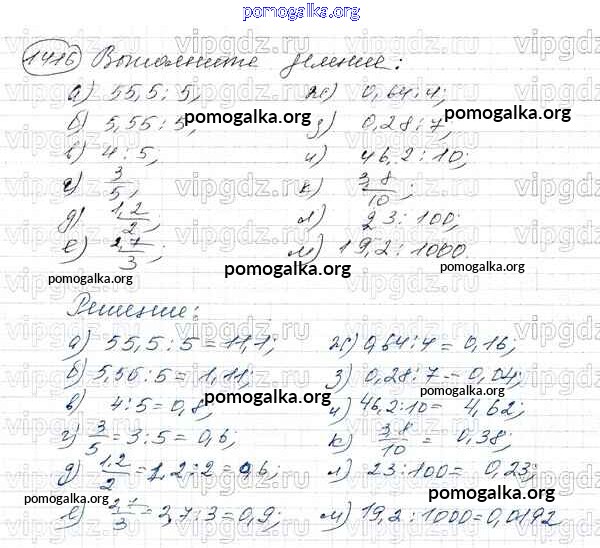 pomogalka.org
1416 Выполните деление:
а) 55,5 : 5; ж) 0,64 : 4;
б) 5,55 : 5; з) 0,28 : 7;
в) 4 : 5; и) 46,2 : 10;
г) 3/5; к) 3,8/10;
д) 1,2/2; л) 23 : 100;
е) 2,7/3; м) 19,2 : 1000.
Решение:
а) 55,5 : 5 = 11,1; ж) 0,64 : 4 = 0,16;
б) 5,55 : 5 = 1,11; з) 0,28 : 7 = 0,04;
в) 4 : 5 = 0,8; и) 46,2 : 10 = 4,62;
г) 3/5 = 3 : 5 = 0,6; к) 3,8/10 = 0,38;
д) 1,2/2 = 1,2 : 2 = 0,6; л) 23 : 100 = 0,23;
е) 2,7/3 = 2,7 : 3 = 0,9; м) 19,2 : 1000 = 0,0192
vipgdz.ru